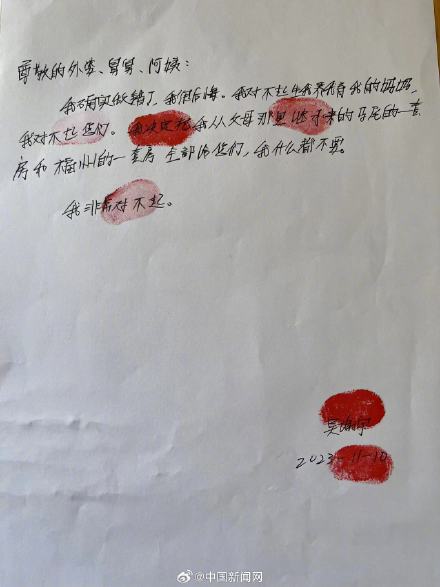 尊敬的外婆、舅舅、阿姨：
我确实做错了，我很后悔。我对不起生我养育我的妈妈，
我对不起您们。我决定把我从父母那里继承来的马尾的一套
房和福州的一套房全部给您们，我什么都不要。
我非常对不起。
吴谢宇
2023-11-10
@中国新闻网